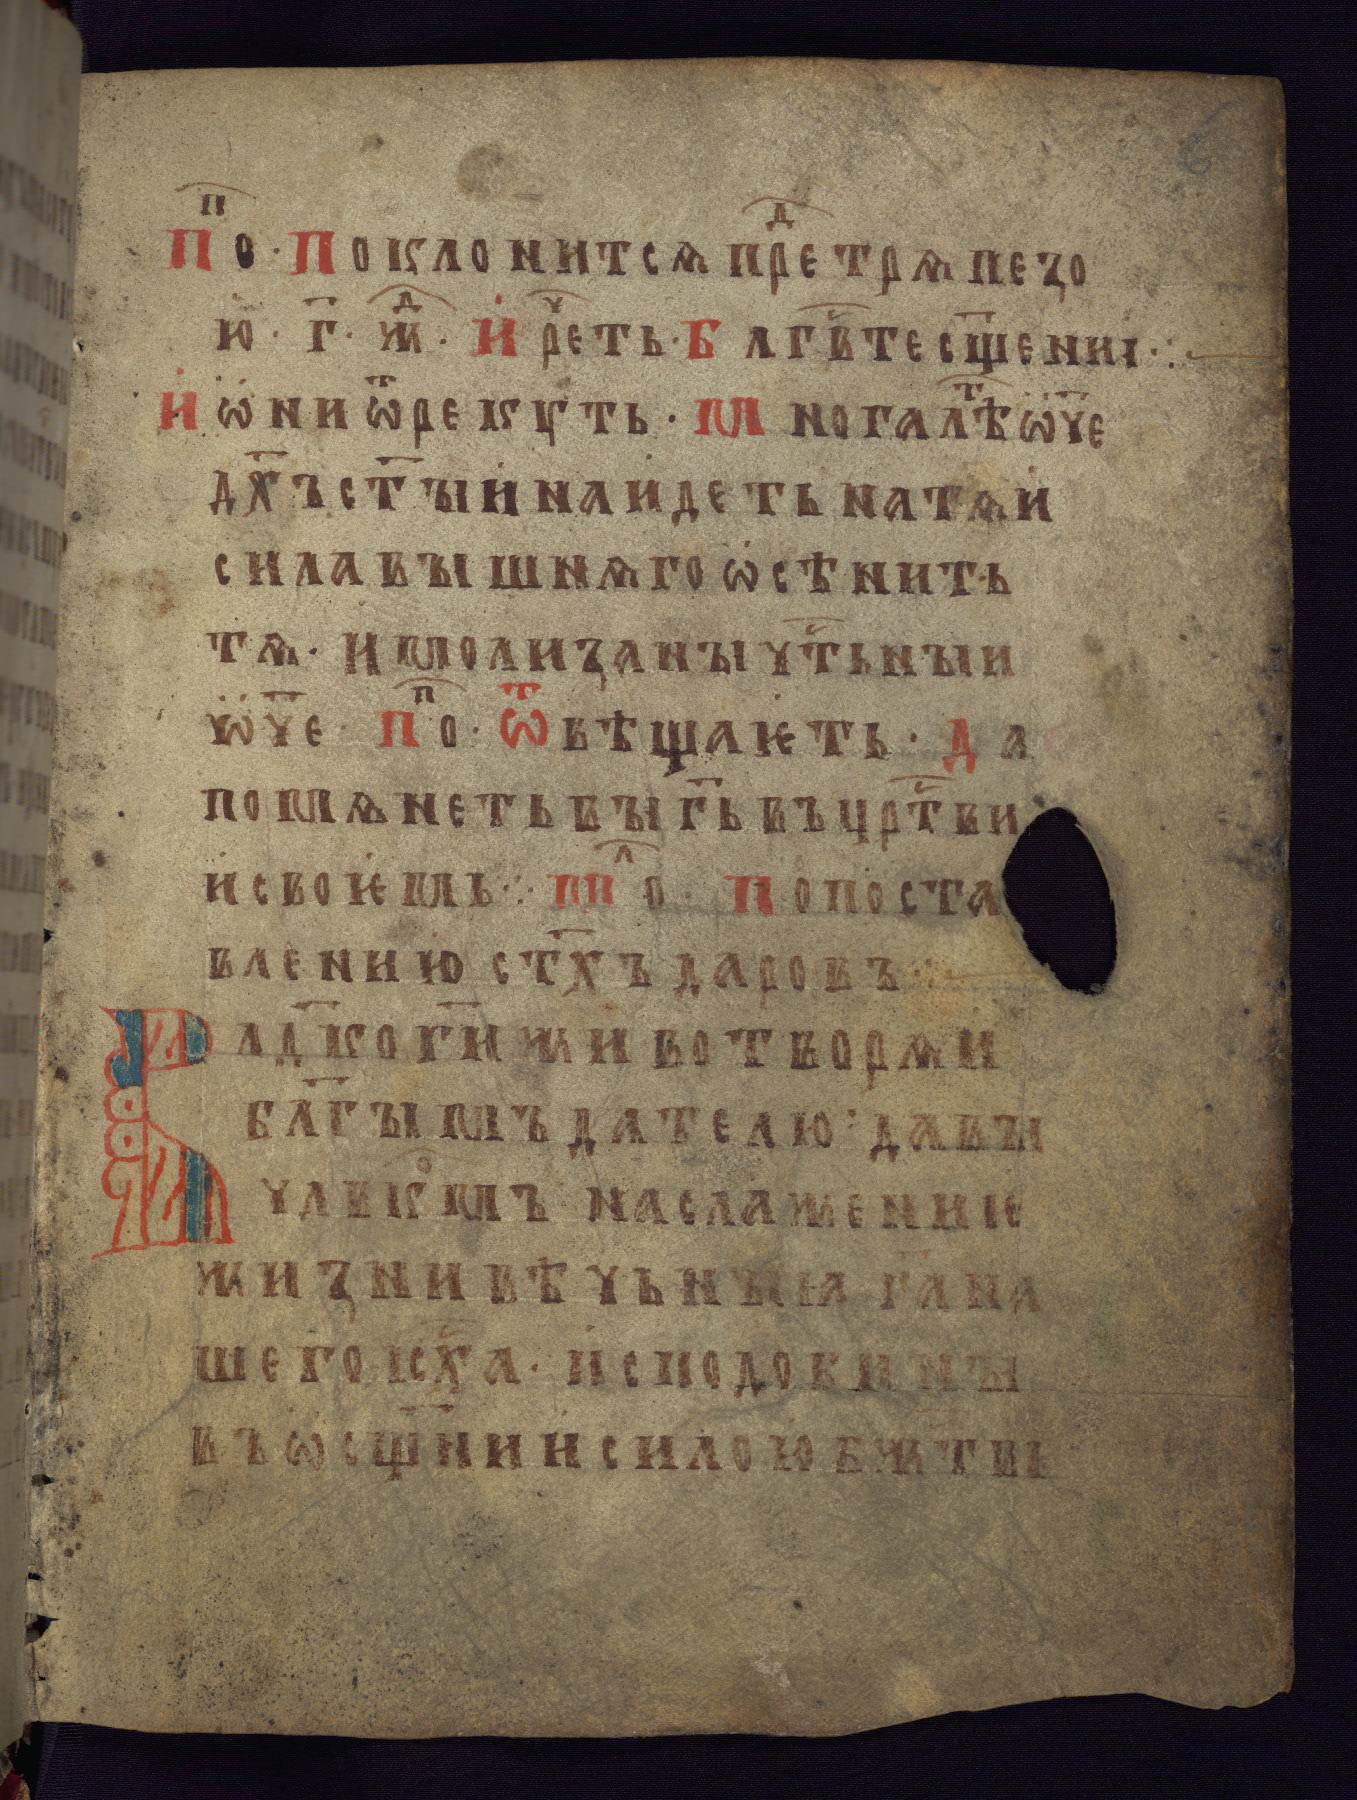 по҇п · Поклонитсѧ прⷣе трѧпезо
ю · г҃ · жⷣ · И рⷱеть · Блгв҇те сщ҃ении · :
И ѡни ѿрекꙋть · Многа лѣⷮ ѡч҃е
дх҃ъ ст҃ыи наидеть на тѧ и
сила вышнѧго ѡсѣнить
тѧ · и моли за ны чт҇ьныи
ѡч҃е · поⷫ · Ѿвѣщаѥть · Да
помѧнеть вы г҃ь въ црт҇ви
и своѥмь : моⷧ · По поста
влению ст҃хъ даровъ :
Влд҃ко г҃и животворѧи
бл҃гымъ дателю : давыи
чл҃вкⷪмъ наслажениѥ
жизни вѣчьныꙗ г҃а на
шего і҃сх҃а · и сподоби ны
въ ѡсщ҃нии силою бжт҇вь